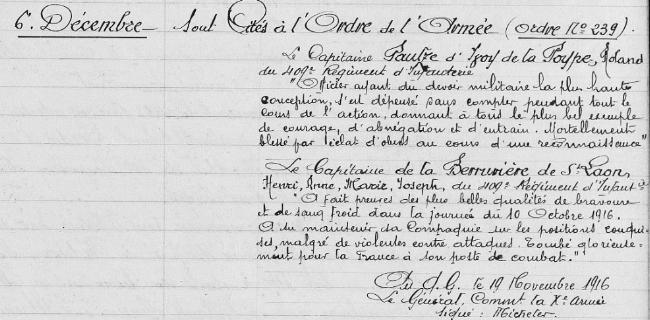 6. Décembre — Sont Cités à l'Ordre de l'Armée (Ordre No 239).
Le Capitaine Paulze d'Ivoy de la Poype, Roland
du 409e Régiment d'Infanterie
"Officier ayant du devoir militaire la plus haute
conception, s'est dépensé sans compter pendant tout le
cours de l'action, donnant à tous le plus bel exemple
de courage, d'abnégation et d'entrain. Mortellement
blessé par éclat d'obus au cours d'une reconnaissance"
Le Capitaine de la Serruvière de St Laon,
Henri, Anne, Marie, Joseph, du 409e Régiment d'Infantie
"A fait preuves des plus belles qualités de bravoure
et de sang froid dans la journée du 10 Octobre 1916.
A su maintenir sa Compagnie sur les positions conqui-
ses, malgré de violentes contre attaques. Tombé glorieuse-
ment pour la France à son poste de combat."
Au Q.G. le 19 Novembre 1916
Le Général, Commt la Xe Armée
signé : Micheler.